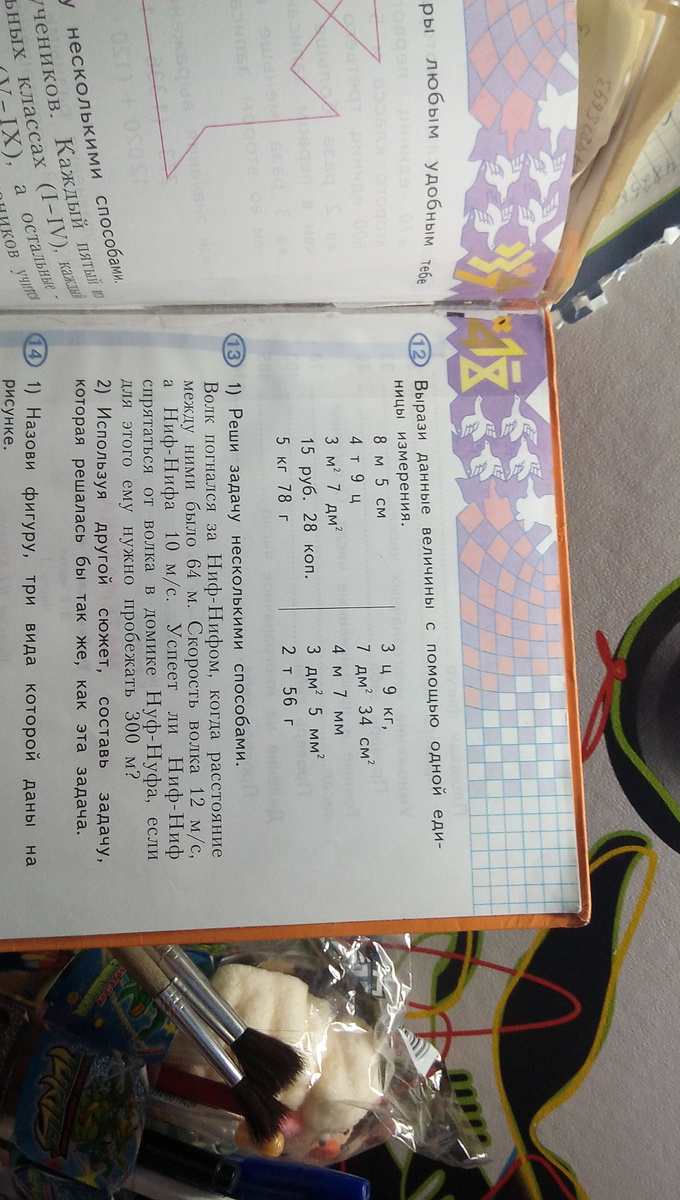 ры любым удобным тебе
у несколькими способами.
учеников. Каждый пятый
ьных классах (I–IV), каждый
(V–IX), а остальные
еников учится
12 Вырази данные величины с помощью одной еди-
ницы измерения.
8 м 5 см
4 т 9 ц
3 м² 7 дм²
15 руб. 28 коп.
5 кг 78 г
3 ц 9 кг,
7 дм² 34 см²
4 м 7 мм
3 дм² 5 мм²
2 т 56 г
13 1) Реши задачу несколькими способами.
Волк погнался за Ниф-Нифом, когда расстояние
между ними было 64 м. Скорость волка 12 м/с,
а Ниф-Нифа 10 м/с. Успеет ли Ниф-Ниф
спрятаться от волка в домике Нуф-Нуфа, если
для этого ему нужно пробежать 300 м?
2) Используя другой сюжет, составь задачу,
которая решалась бы так же, как эта задача.
14 1) Назови фигуру, три вида которой даны на
рисунке.